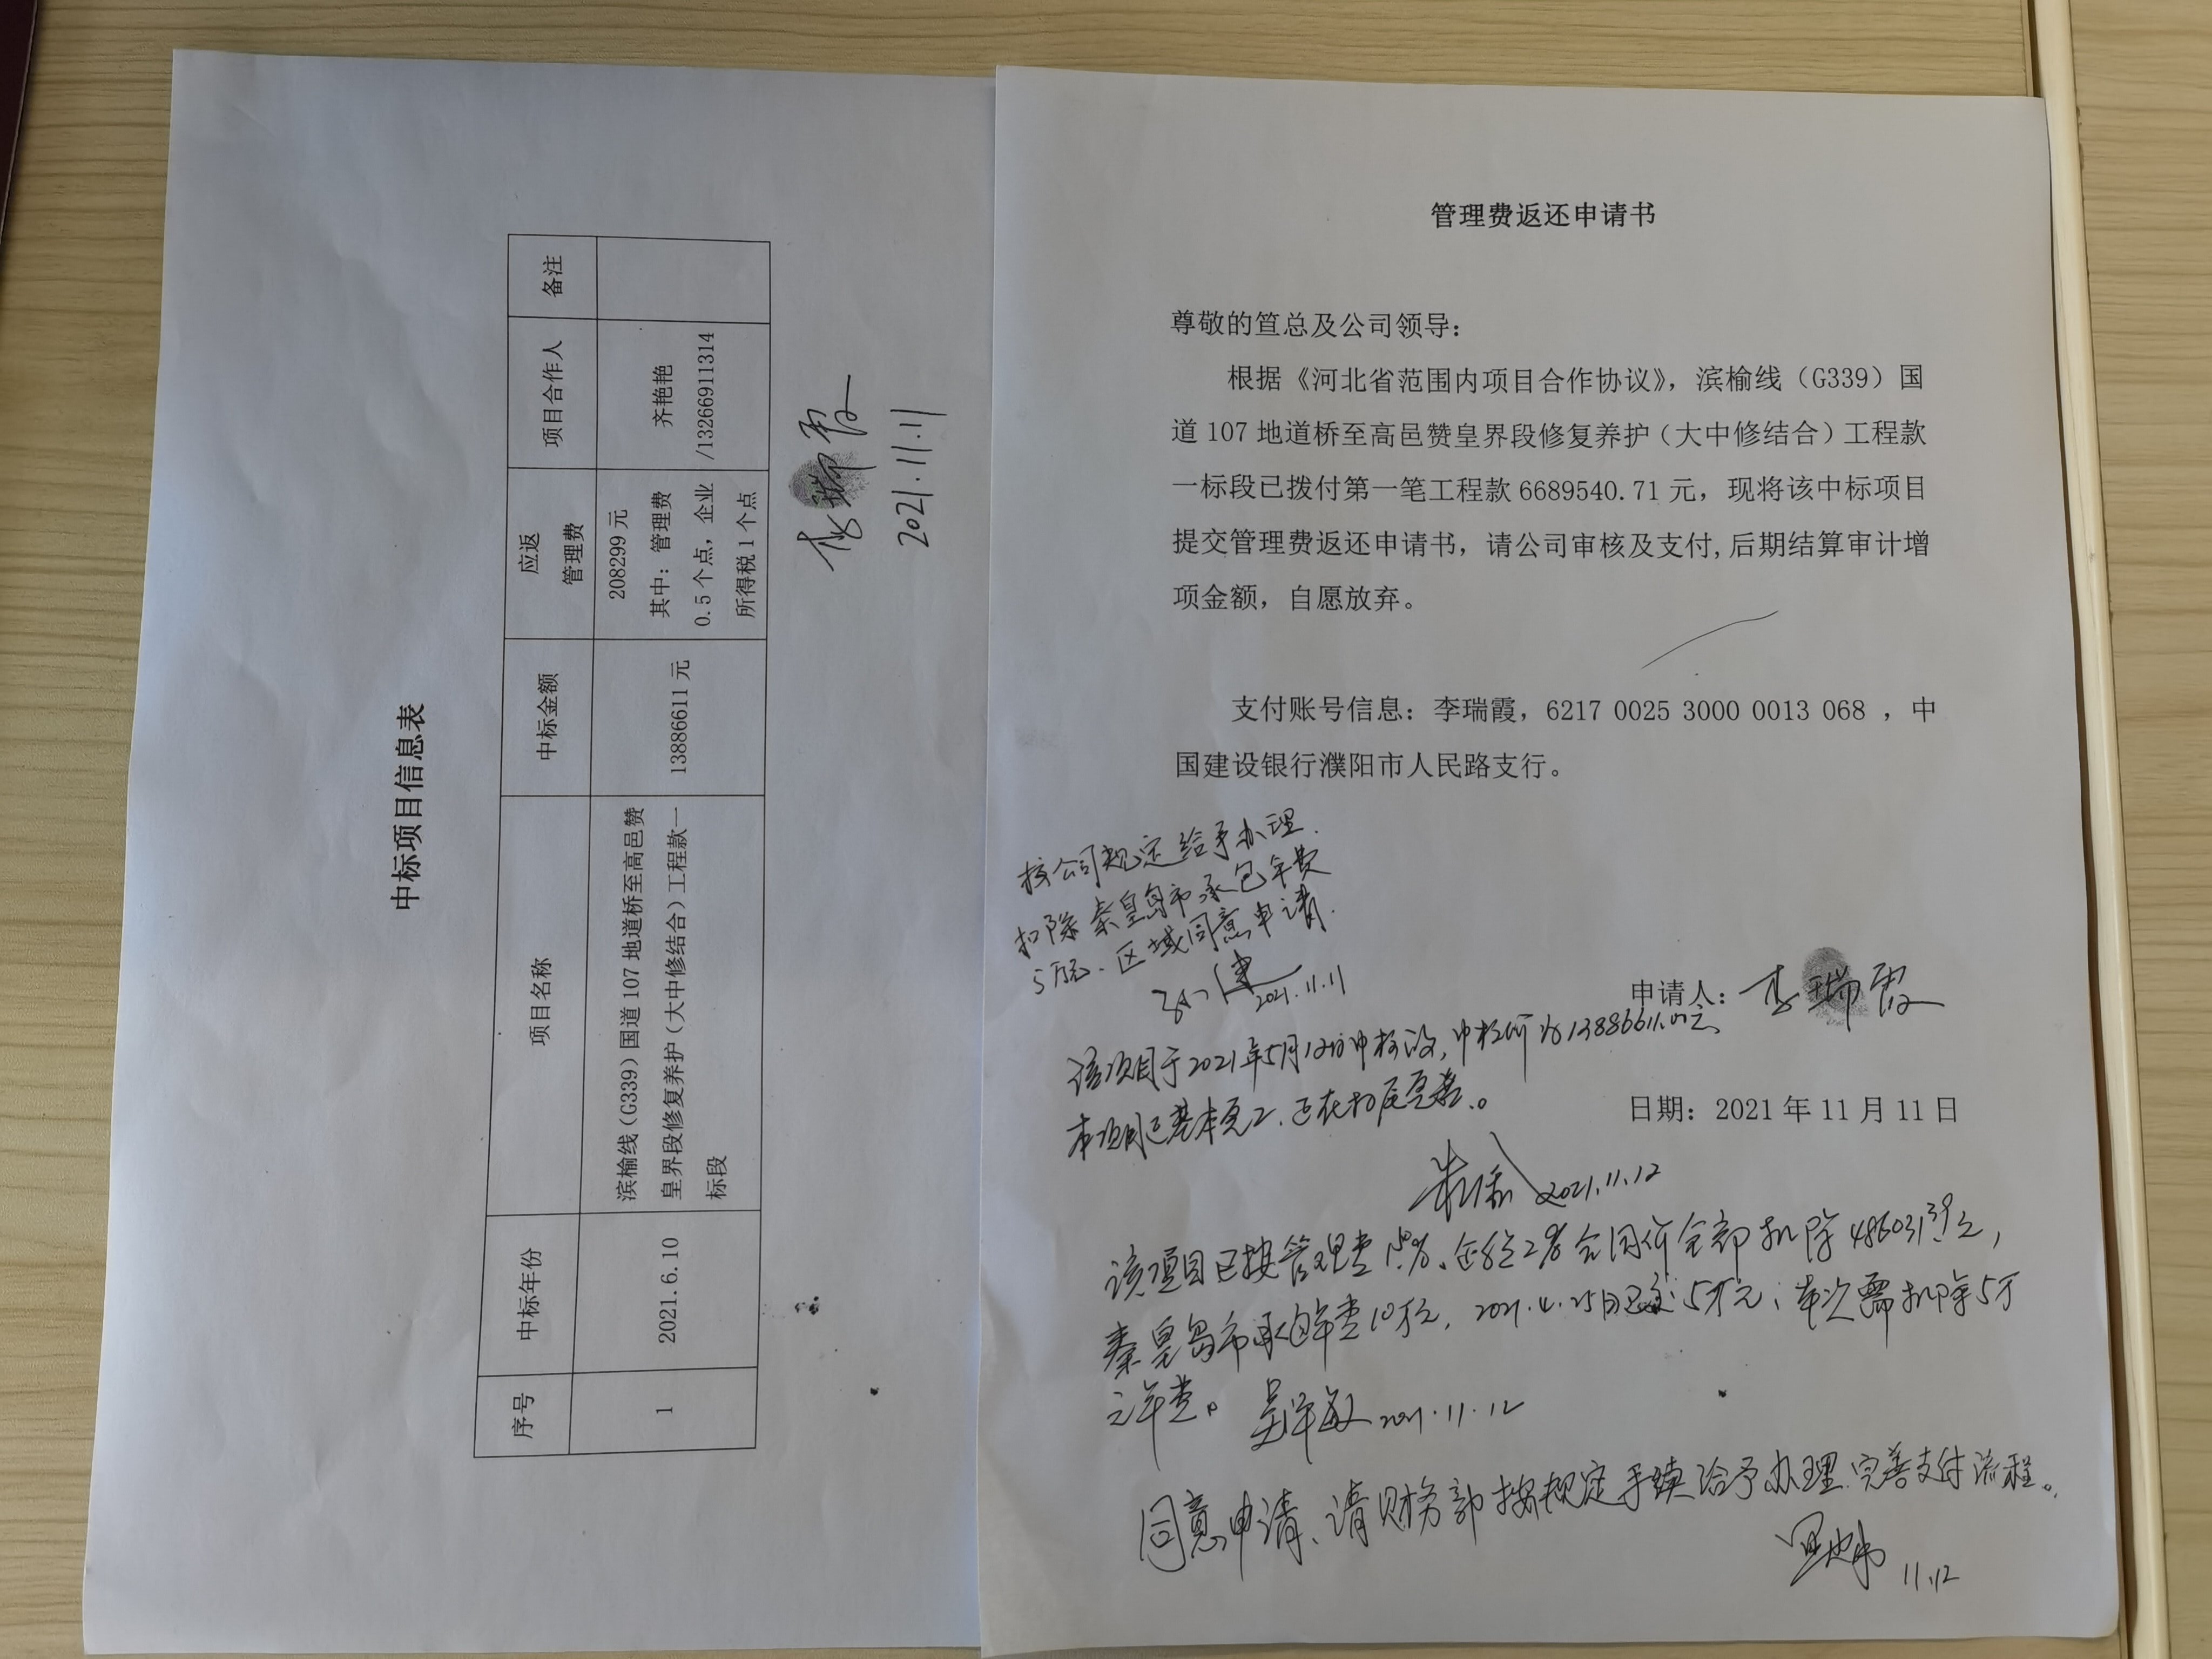 中标项目信息表
序号 中标年份 项目名称 中标金额 应返 管理费 项目合作人 备注
1 2021.6.10 滨榆线（G339）国道 107 地道桥至高邑赞 13886611 元 208299 元 齐艳艳
皇界段修复养护（大中修结合）工程款一 其中：管理费 /13266911314
标段 0.5 个点，企业
所得税 1 个点
李瑞霞
2021.11.11
管理费返还申请书
尊敬的笪总及公司领导：
根据《河北省范围内项目合作协议》，滨榆线（G339）国
道 107 地道桥至高邑赞皇界段修复养护（大中修结合）工程款
一标段已拨付第一笔工程款 6689540.71 元，现将该中标项目
提交管理费返还申请书，请公司审核及支付,后期结算审计增
项金额，自愿放弃。
支付账号信息：李瑞霞，6217 0025 3000 0013 068 ，中
国建设银行濮阳市人民路支行。
按公司规定给予办理.
扣除秦皇岛市承包年费
5万元.区域同意申请.
2021.11.11
申请人：李瑞霞
该项目于2021年5月12日中标，中标价为13886611.00元
本项目已基本完工，正在扫尾完善。
日期：2021 年 11 月 11 日
2021.11.12
该项目已按管理费1.5%、企税2%合同价全部扣除486031.39元，
秦皇岛市承包年费10万元，2021.4.25日已交5万元；本次需扣除5万
元年费。 2021.11.12
同意申请、请财务部按规定手续给予办理.完善支付流程。
11.12